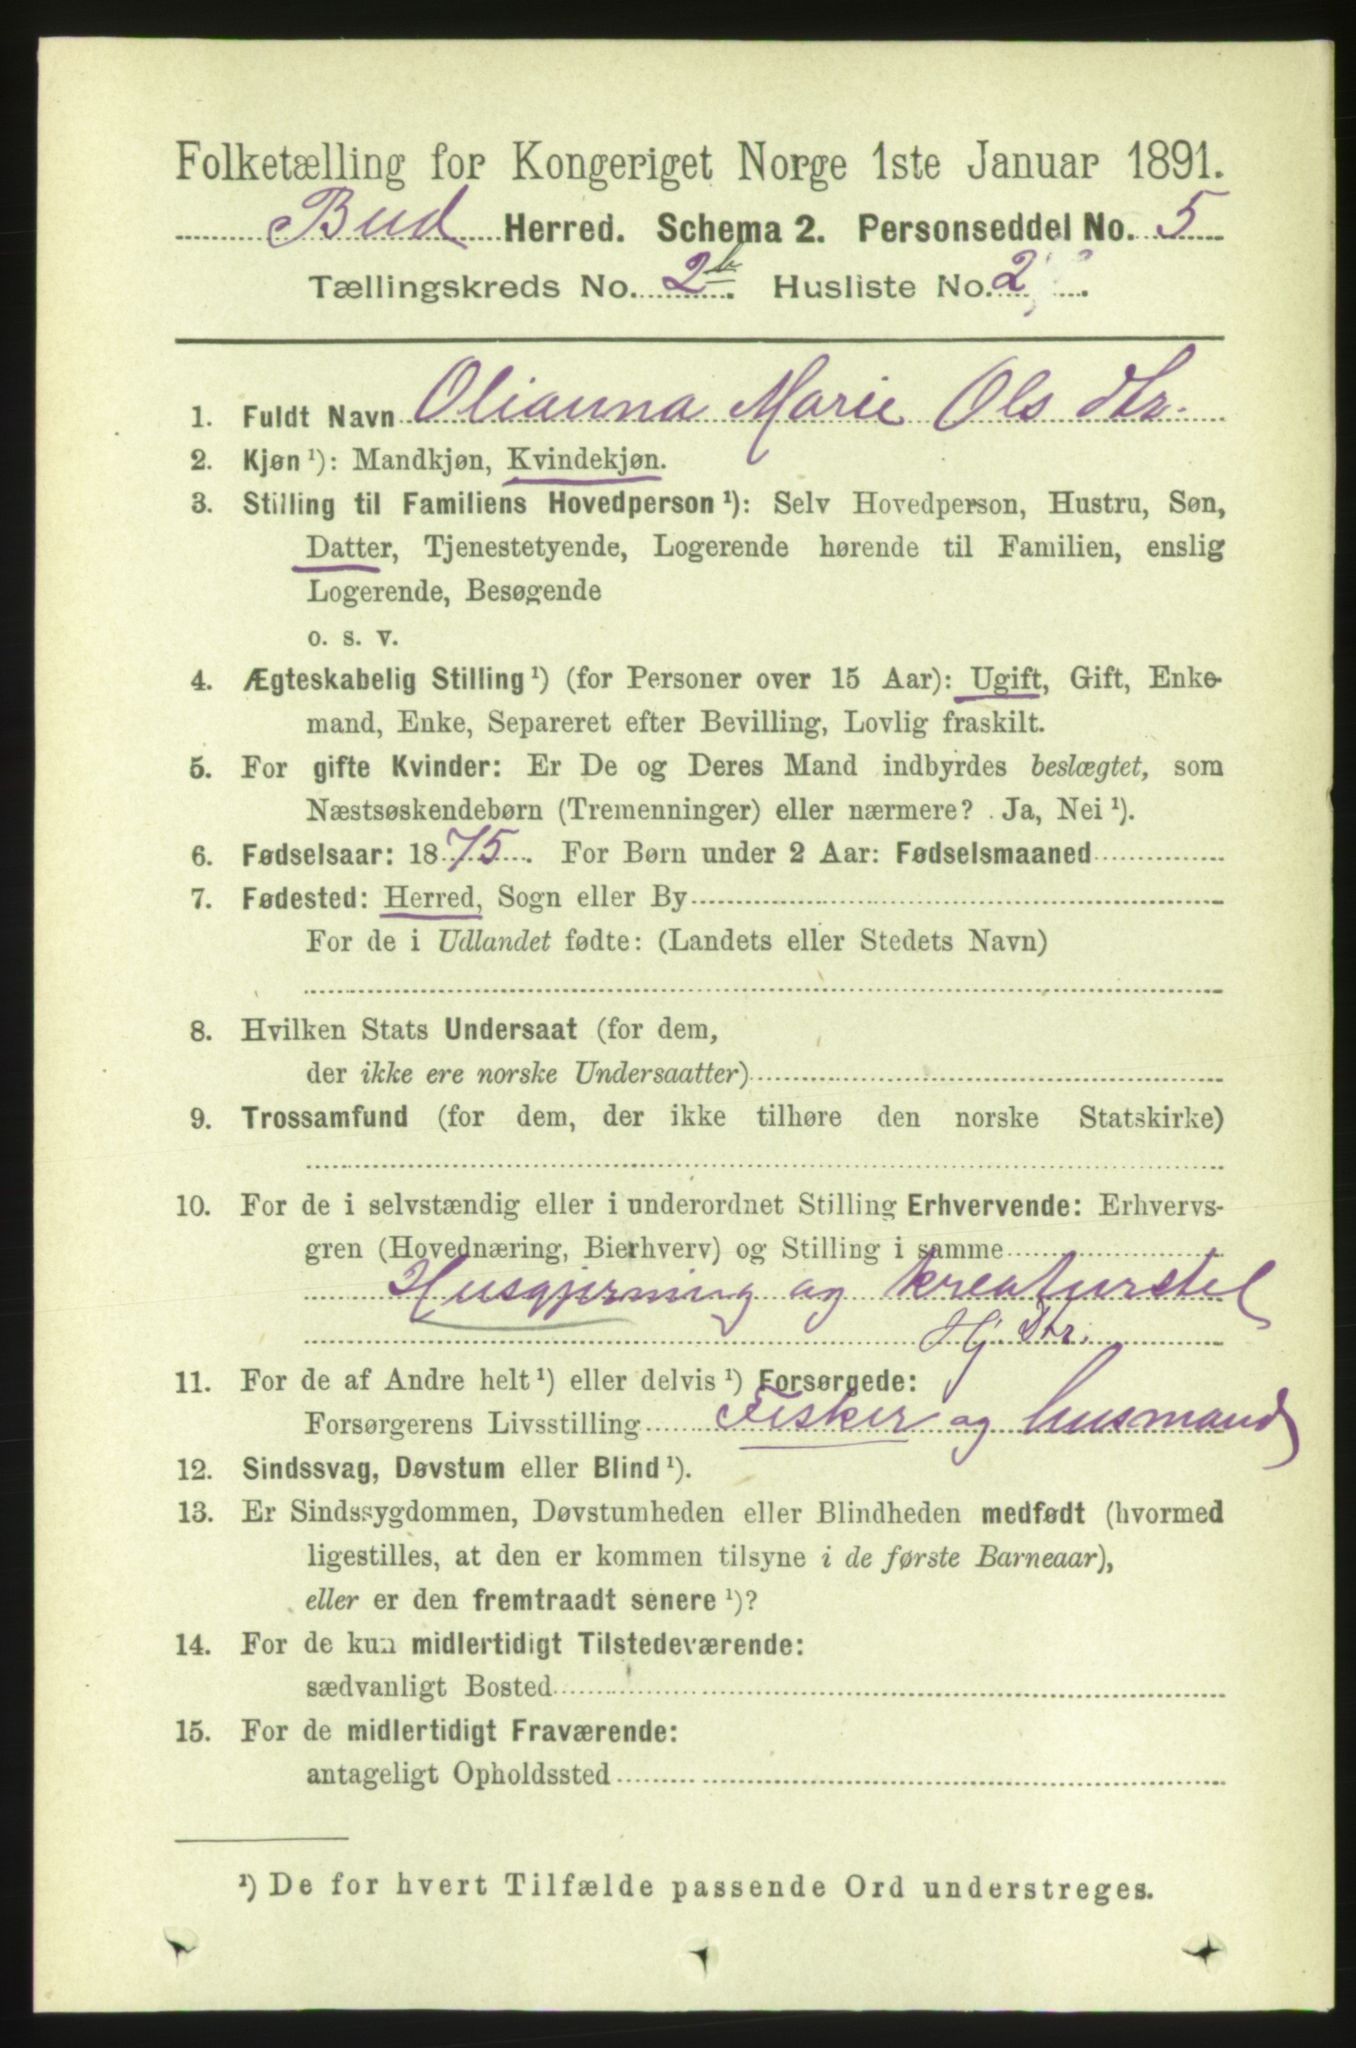 Folketælling for Kongeriget Norge 1ste Januar 1891.
Bud Herred. Schema 2. Personseddel No. 5
Tællingskreds No. 2b. Husliste No. 2.
1. Fuldt Navn Olianna Marie Ols dtr.
2. Kjøn ¹): Mandkjøn, Kvindekjøn.
3. Stilling til Familiens Hovedperson ¹): Selv Hovedperson, Hustru, Søn,
Datter, Tjenestetyende, Logerende hørende til Familien, enslig
Logerende, Besøgende
o. s. v.
4. Ægteskabelig Stilling ¹) (for Personer over 15 Aar): Ugift, Gift, Enke-
mand, Enke, Separeret efter Bevilling, Lovlig fraskilt.
5. For gifte Kvinder: Er De og Deres Mand indbyrdes beslægtet, som
Næstsøskendebørn (Tremenninger) eller nærmere? Ja, Nei ¹).
6. Fødselsaar: 1875. For Børn under 2 Aar: Fødselsmaaned
7. Fødested: Herred, Sogn eller By
For de i Udlandet fødte: (Landets eller Stedets Navn)
8. Hvilken Stats Undersaat (for dem,
der ikke ere norske Undersaatter)
9. Trossamfund (for dem, der ikke tilhøre den norske Statskirke)
10. For de i selvstændig eller i underordnet Stilling Erhvervende: Erhvervs-
gren (Hovednæring, Bierhverv) og Stilling i samme
Husgjerning og kreaturstel
Hj. Dtr.
11. For de af Andre helt ¹) eller delvis ¹) Forsørgede:
Forsørgerens Livsstilling Fisker og husmand
12. Sindssvag, Døvstum eller Blind ¹).
13. Er Sindssygdommen, Døvstumheden eller Blindheden medfødt (hvormed
ligestilles, at den er kommen tilsyne i de første Barneaar),
eller er den fremtraadt senere ¹)?
14. For de kun midlertidigt Tilstedeværende:
sædvanligt Bosted
15. For de midlertidigt Fraværende:
antageligt Opholdssted
¹) De for hvert Tilfælde passende Ord understreges.